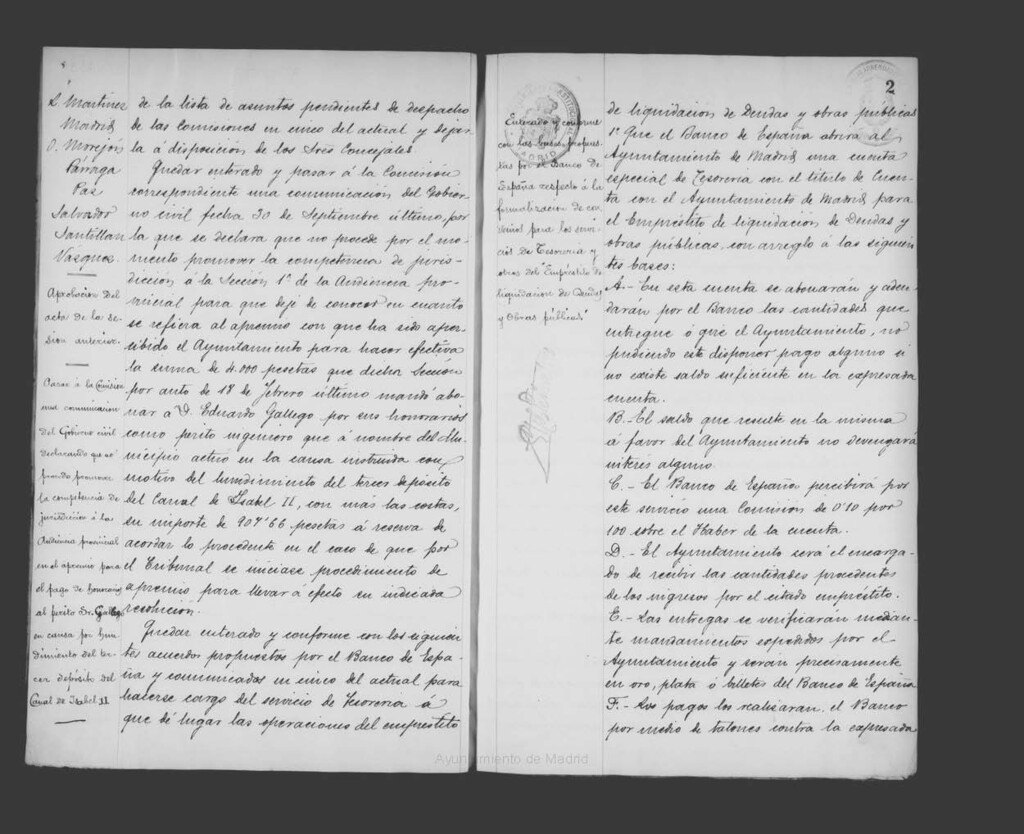 L. Martínez
Madrid
O. Morejón
Párraga
Paz
Salvador
Santillan
Vazquez.
Aprobacion del
acta de la se-
sion anterior.
Pasar á la Comision
una comunicacion
del Gobierno civil
declarando que no
procede promover
la competencia de
jurisdiccion á la
Audiencia provincial
en el apremio para
el pago de honorarios
al perito Sr. Gallego
en causa por hun-
dimiento del ter-
cer depósito del
Canal de Isabel II
de la lista de asuntos pendientes de despacho
de las Comisiones en cinco del actual y dejar-
la á disposición de los Sres Concejales.
Quedar enterado y pasar á la Comisión
correspondiente una comunicación del Gobier-
no civil fecha 30 de Septiembre último, por
la que se declara que no procede por el mo-
mento promover la competencia de juris-
dicción á la Sección 1ª de la Audiencia pro-
vincial para que deje de conocer en cuanto
se refiera al apremio con que ha sido aper-
cibido el Ayuntamiento para hacer efectiva
la suma de 4.000 pesetas que dicha Sección
por auto de 18 de Febrero último mandó abo-
nar á D. Eduardo Gallego por sus honorarios
como perito ingeniero que á nombre del Mu-
nicipio actuó en la causa instruida con
motivo del hundimiento del tercer depósito
del Canal de Isabel II, con más las costas,
su importe de 907'66 pesetas á reserva de
acordar lo procedente en el caso de que por
el Tribunal se iniciase procedimiento de
apremio para llevar á efecto su indicada
resolución.
Quedar enterado y conforme con los siguien-
tes acuerdos propuestos por el Banco de Espa-
ña y comunicados en cinco del actual para
hacerse cargo del servicio de Tesorería á
que dé lugar las operaciones del empréstito
2
Enterado y conforme
con las bases propues-
tas por el Banco de
España respecto á la
formalizacion de con-
venios para los servi-
cios de Tesoreria y
otros del "Empréstito de
liquidacion de Deudas
y Obras públicas"
de liquidación de Deudas y obras públicas
1º Que el Banco de España abrirá al
Ayuntamiento de Madrid una cuenta
especial de Tesorería con el título de Cuen-
ta con el Ayuntamiento de Madrid para
el Empréstito de liquidación de Deudas y
obras públicas, con arreglo á las siguien-
tes bases:
A.- En esta cuenta se abonarán y adeu-
darán por el Banco las cantidades que
entregue ó gire el Ayuntamiento, no
pudiendo este disponer pago alguno si
no existe saldo suficiente en la expresada
cuenta.
B.- El saldo que resulte en la misma
á favor del Ayuntamiento no devengará
interés alguno.
C.- El Banco de España percibirá por
este servicio una Comisión de 0'10 por
100 sobre el Haber de la cuenta.
D.- El Ayuntamiento será el encarga-
do de recibir las cantidades procedentes
de los ingresos por el citado empréstito.
E.- Las entregas se verificarán median-
te mandamientos expedidos por el
Ayuntamiento y serán precisamente
en oro, plata ó billetes del Banco de España
F.- Los pagos los realizará el Banco
por medio de talones contra la expresada
Ayuntamiento de Madrid